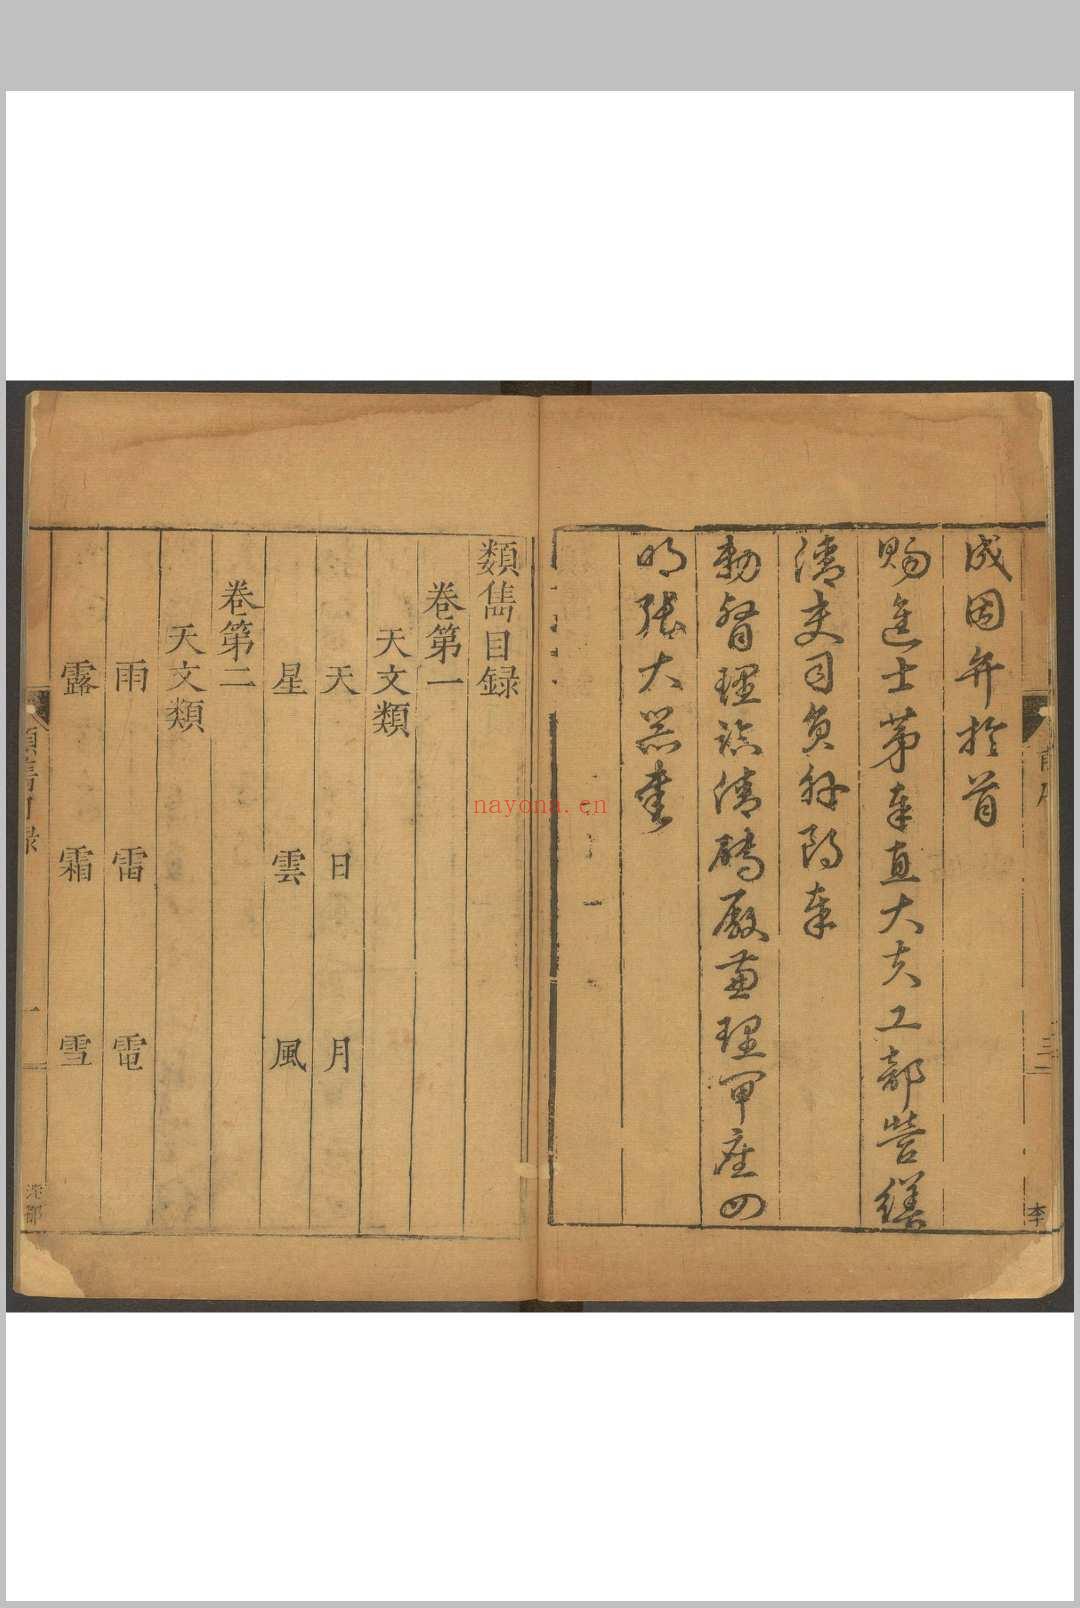 成因弁於首
賜進士第奉直大夫工部營繕
清吏司員外郎奉
勅督理臨清磚厰兼理甲座四
明張大器書
李
類雋目録
卷第一
天文類
天 日 月
星 雲 風
卷第二
天文類
雨 雷 電
露 霜 雪
類雋目録
一
nayona.cn